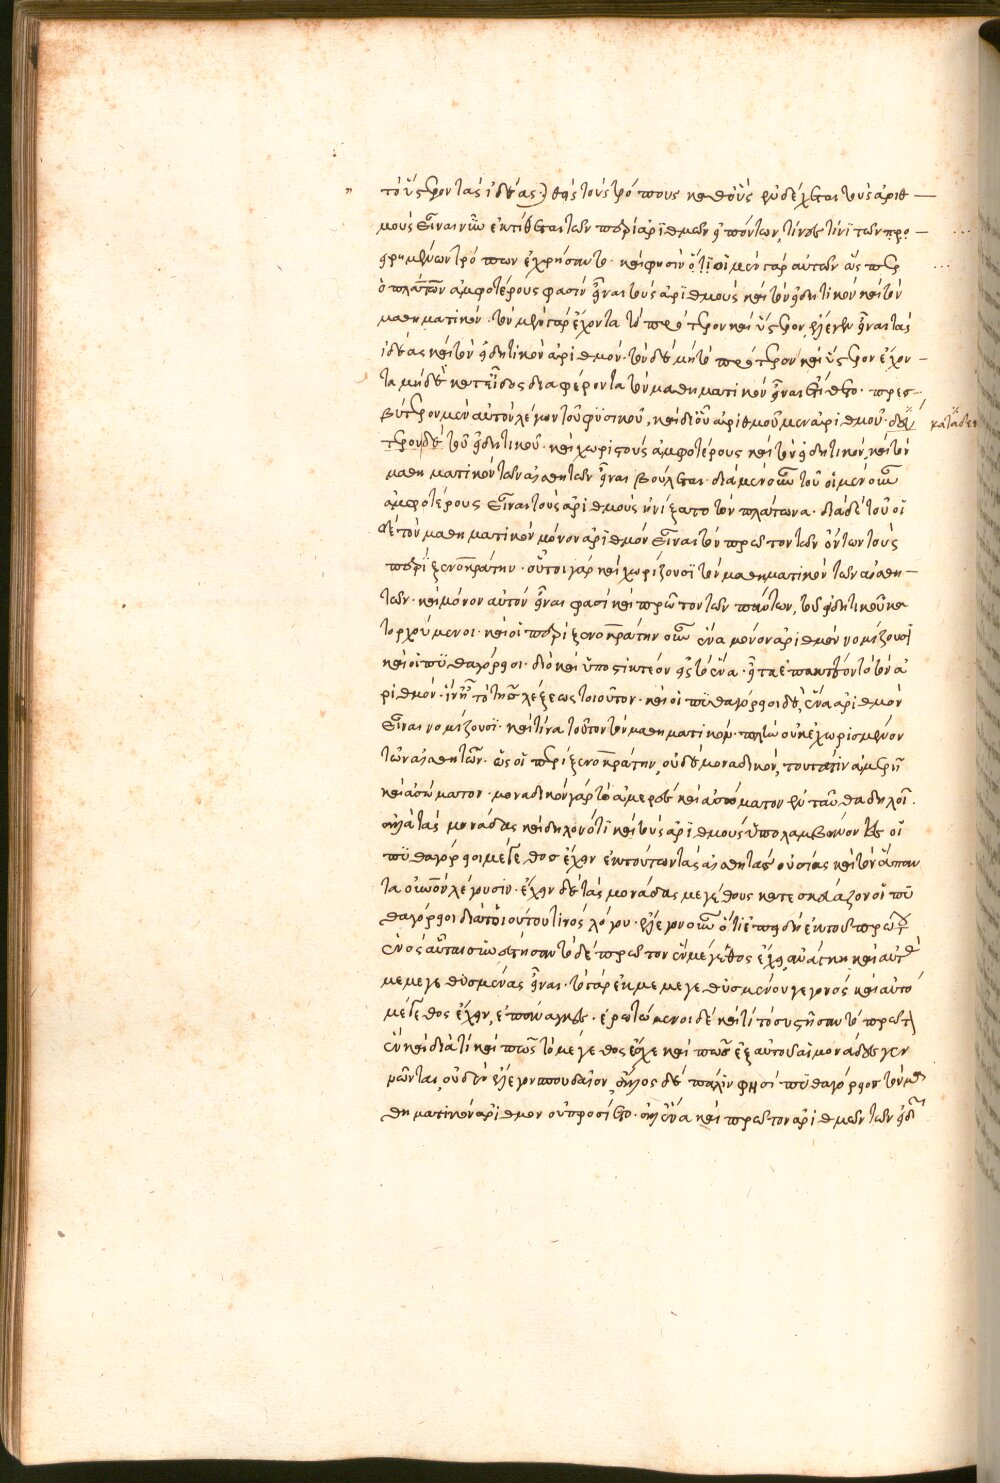 τὸ ὕστερον τὰς ἰδέας·) θεὶς τοὺς τρόπους καθ' οὓς ἐνδέχεται τοὺς ἀριθ
μοὺς εἶναι νῦν ἐκτίθεται τῶν περὶ ἀριθμῶν εἰπόντων, τίνες τίνι τῶν προ
ειρημένων τρόπων ἐχρήσαντο· καί φησιν ὅτι οἱ μὲν γὰρ αὐτῶν ὥσπερ
ὁ πλάτων ἀμφοτέρους φασὶν εἶναι τοὺς ἀριθμοὺς καὶ τὸν εἰδητικὸν καὶ τὸν
μαθηματικόν· τὸν μὲν γὰρ ἔχοντα τὸ πρότερον καὶ ὕστερον, ἔλεγεν εἶναι τὰς
ἰδέας καὶ τὸν εἰδητικὸν ἀριθμόν· τὸν δὲ μὴ τὸ πρότερον καὶ ὕστερον ἔχον
τα μηδὲ κατ' εἶδος διαφέροντα τὸν μαθηματικὸν εἶναι ἐτίθετο· πρεσ
βύτερον μὲν αὐτὸν λέγων τοῦ φυσικοῦ, καὶ δι' οὗ ἀριθμοῦμεν ἀριθμοῦ· δεύ
τερον δὲ τοῦ εἰδητικοῦ· καὶ χωριστοὺς ἀμφοτέρους καὶ τὸν εἰδητικὸν, καὶ τὸν
μαθηματικὸν τῶν αἰσθητῶν εἶναι βούλεται· διὰ μὲν οὖν τοῦ οἱ μὲν οὖν
ἀμφοτέρους εἶναι τοὺς ἀριθμοὺς ἠνίξατο τὸν πλάτωνα· διὰ δὲ τοῦ οἱ
δὲ τὸν μαθηματικὸν μόνον ἀριθμὸν εἶναι τὸν πρῶτον τῶν ὄντων τοὺς
περὶ ξενοκράτην· οὗτοι γὰρ καὶ χωρίζουσι τὸν μαθηματικὸν τῶν αἰσθη
τῶν· καὶ μόνον αὐτὸν εἶναι φασὶ καὶ πρῶτον τῶν πάντων, τοῦ εἰδητικοῦ κα
τορχούμενοι· καὶ οἱ περὶ ξενοκράτην οὖν ἕνα μόνον ἀριθμὸν νομίζουσι
καὶ οἱ πυθαγόρειοι· διὸ καὶ ὑποστικτέον εἰς τὸ ἕνα· εἶτα ἐπακτέον τὸ τὸν ἀ
ριθμόν· ἵν' ᾖ τὸ τῆς λέξεως τοιοῦτον· καὶ οἱ πυθαγόρειοι δὲ, ἕνα ἀριθμὸν
εἶναι νομίζουσι· καὶ τίνα τοῦτον τὸν μαθηματικόν· πλὴν οὐ κεχωρισμένον
τῶν αἰσθητῶν· ὡς οἱ περὶ ξενοκράτην, οὐδὲ μοναδικόν, τουτέστιν ἀμερῆ
καὶ ἀσώματον· μοναδικὸν γὰρ τὸ ἀμερὲς καὶ ἀσώματον ἐνταῦθα δηλοῖ.
ἀλλὰ τὰς μονάδας καὶ δηλονότι καὶ τοὺς ἀριθμοὺς ὑπολαμβάνοντες οἱ
πυθαγόρειοι μέγεθος ἔχειν ἐκ τούτων τὰς αἰσθητὰς οὐσίας καὶ τὸν ἅπαν
τα οὐρανὸν λέγουσιν· ἔχειν δὲ τὰς μονάδας μεγέθους κατεσκεύαζον οἱ πυ
θαγόρειοι διὰ τοιούτου τινὸς λόγου· ἔλεγον οὖν ὅτι ἐπειδὴ ἐκ τοῦ πρώτου
ἑνὸς αὗται συνέστησαν τὸ δὲ πρῶτον ἓν μέγεθος ἔχει, ἀνάγκη καὶ αὐτὰς
μεμεγεθυσμένας εἶναι· τὸ γὰρ ἐκ μεμεγεθυσμένου γεγονὸς καὶ αὐτὸ
μέγεθος ἔχειν, ἐπάναγκες· ἐρωτώμενοι δὲ καὶ τί τὸ συστῆσαν τὸ πρῶτον
ἓν καὶ διὰ τί καὶ πῶς τὸ μέγεθος ἔσχε καὶ πῶς ἐξ αὐτοῦ αἱ μονάδες γεν
νῶνται, οὐδὲν ἔλεγον σπουδαῖον, ἄλλος δέ πάλιν φησὶ πυθαγόρειος τὸν μα
θηματικὸν ἀριθμὸν οὐ προσίετο· ἀλλ' ἕνα καὶ πρῶτον ἀριθμὸν τῶν εἰδη